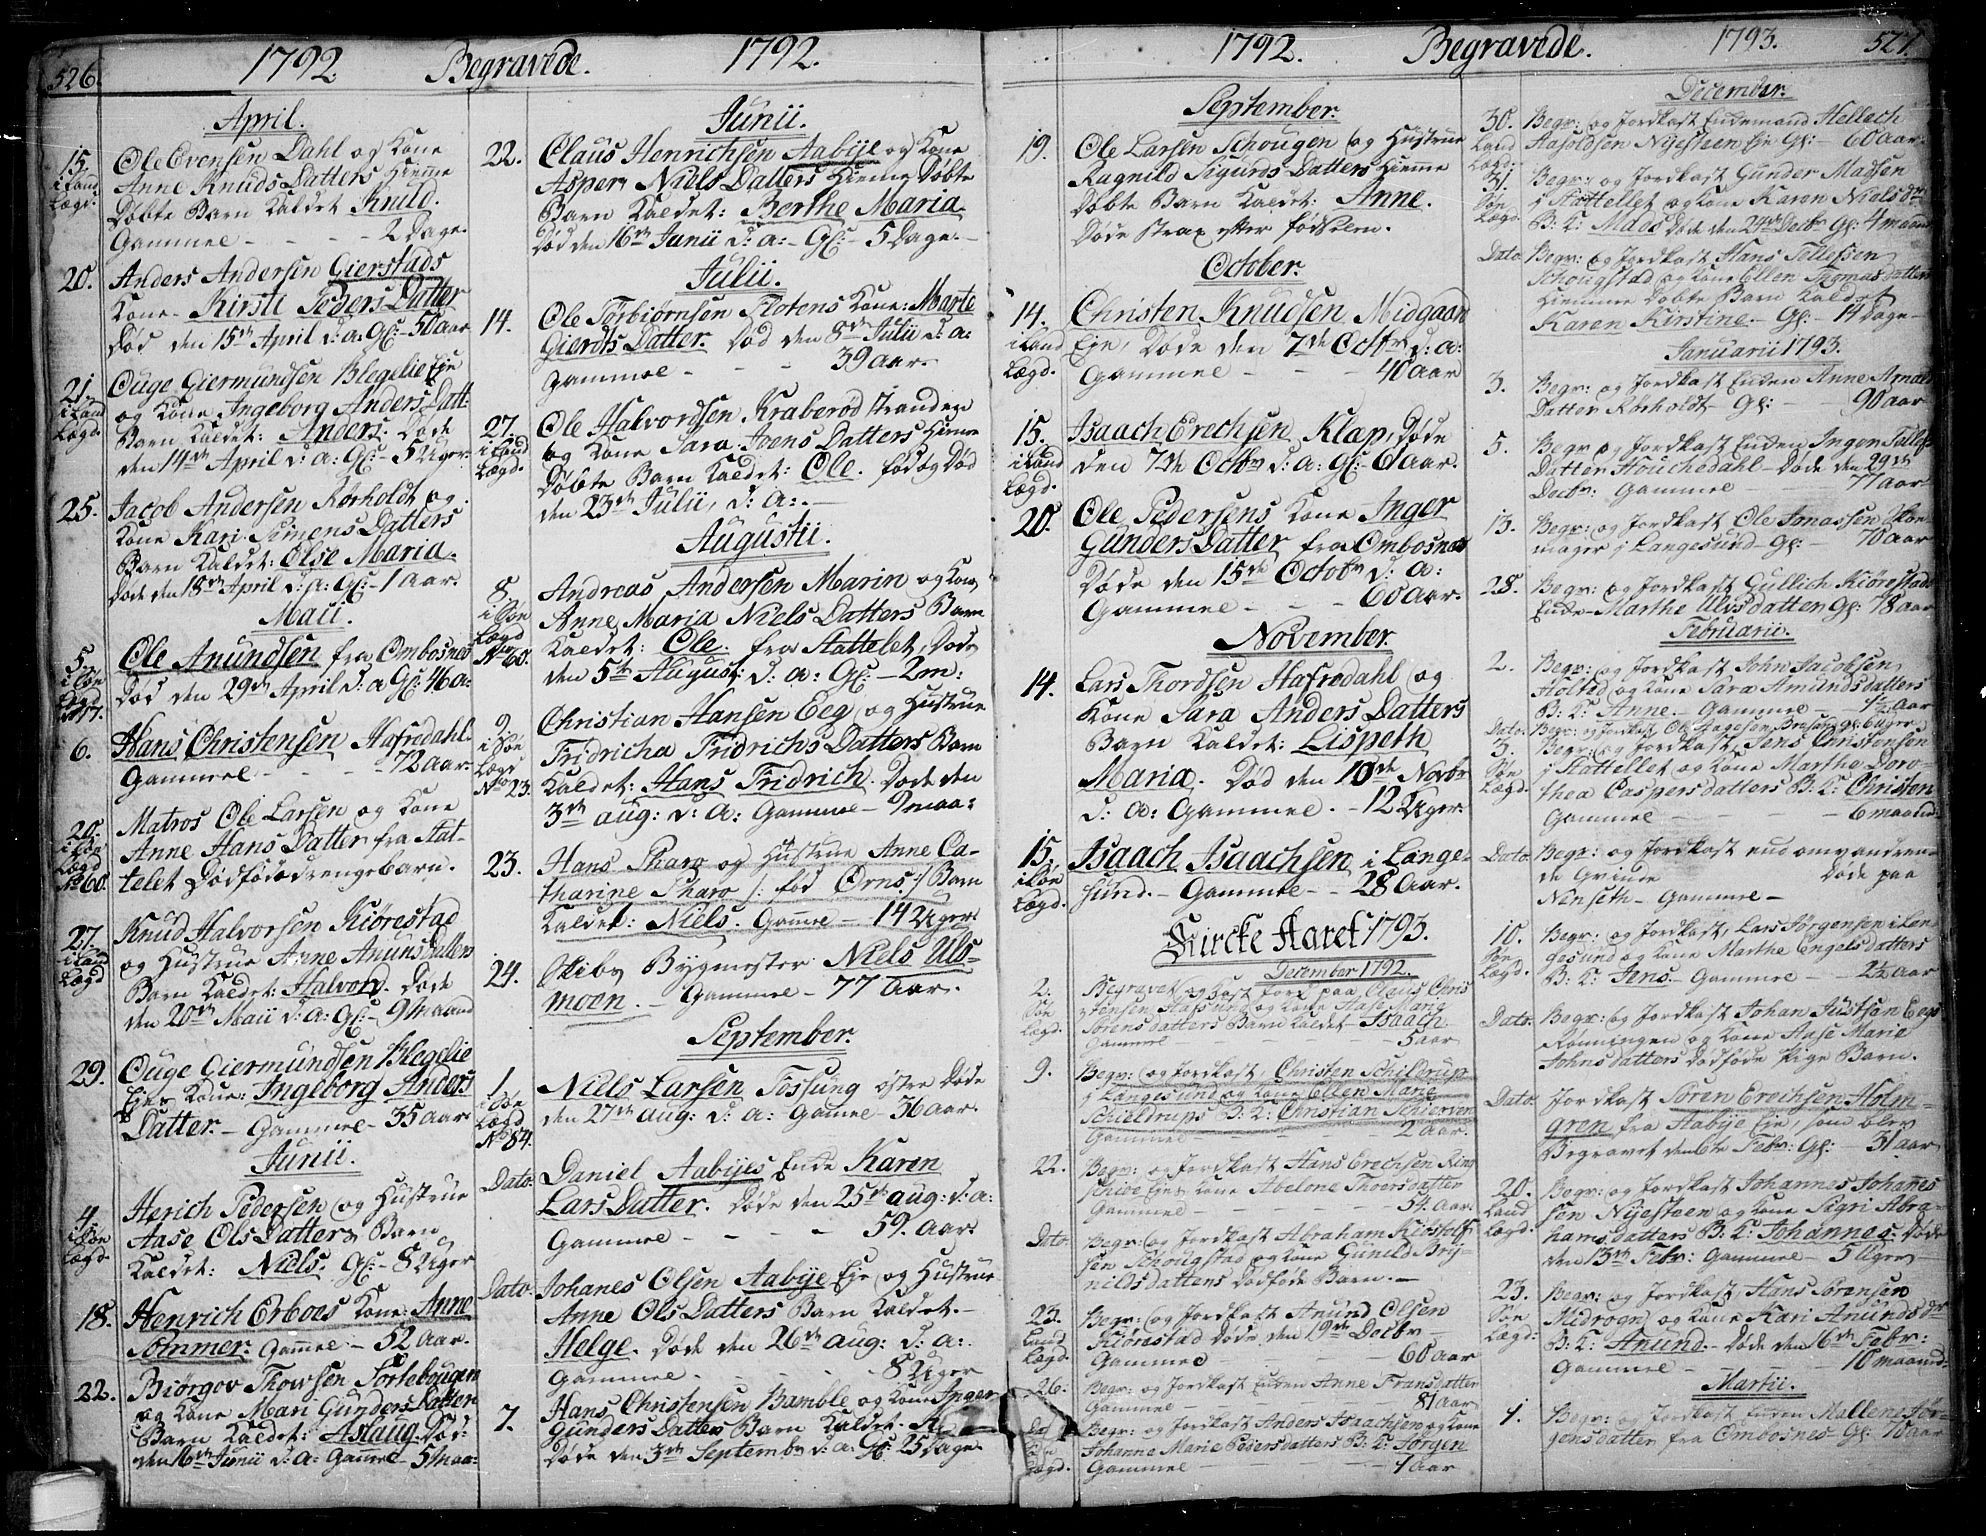 526.
1792 Begravede. 1792.
April.
15. Ole Evensen Dahl og Kone
i Land Anne Knuds Datters Hieme
Lægd. Døbte Barn Kaldet Knud.
Gammel - - - 2 Dage.
20. Anders Andersen Gierstads
Kone. Kirsti Peders Datter
Død den 15de April d: a: Gl: 50 aar
21. Ouge Giermundsen Blegelie Eje
i Land og Kone Ingeborg Anders Datt-
Lægd. Barn Kaldet: Anders. Døde
den 14de April d: a: Gl: 5 Uger.
25. Jacob Andersen Rørholdt og
Kone Kari Simens Datters
Barn Kaldet: Olse Maria.
Døde den 18de April d: a: Gl: - 1 Aar.
Maii.
5. Ole Anundsen fra Ombosnes
i Søe Død den 29de April d: a Gl: 46 a:
Lægd
No 17.
6. Hans Christensen Hafredahl.
Gammel - - - - 72 aar.
20. Matros Ole Larsen og Kone
i Søe Anne Hans Datter fra Stat-
Lægd telet Dødfødt drengebarn.
No 60.
27. Knud Halvorsen Kiørestad
i Land og Hustrue Anne Anuns Datters
Lægd Barn Kaldet: Halvord. Døde
den 20de Maii d: a: Gl: - 9 maaned
29. Ouge Giermundsen Blegelie
Ejes Kone: Ingeborg Anders
Datter. - Gammel - 35 aar.
Junii.
4. Henrich Pedersen og Hustrue
i Søe Aase Ols Datters Barn
Lægd. Kaldet: Niels. Gl: - 8 Uger
18. Henrich Erboes Kone: Anne
Sommer. Gamel - 52 aar.
22. Biørgov Thovsen Sortebougen
og Kone Mari Gunders Datters
Barn Kaldet: Aslaug. Død:
den 16de Junii d: a: Gamel - 5 maa:
Junii.
22. Claus Henrichsen Aabye og Kone
Asper Niels Datters Hieme Døbte
Barn Kaldet: Berthe Maria.
Død den 16de Junii d: a: - Gl: - 5 Dage. -
Julii.
14. Ole Torbiørnsen Flotens Kone: Marte
Gierdts Datter. Død den 8de Julii d: a:
Gammel - - - 39 aar.
27. Ole Halvordsen Kraberød stranden
i Land og Kone Sara Joens Datters Hieme
Lægd. Døbte Barn Kaldet: Ole. fød og Død
den 23de Julii, d: a: -
Augustii.
8. Andreas Andersen Marin og Kone
i Søe Anne Maria Niels Datters Barn
Lægd Kaldet: Ole. fra Stattelet, Døde
No 60. den 5te August: d: a: Gl: - 2 m:
9. Christian Hansen Eeg og Hustrue
i Søe Fridricha Fridrichs Datters Barn
Lægd Kaldet: Hans Fridrich. Døde den
No 23. 3de aug: d: a: Gammel - 9 maa:
23. Hans Tharo og Hustrue Anne Ca-
tharine Tharo /: fød Ørns :/ Barn
Kaldet: Niels. Gamel - 14 Uger
24. Skibs Bygmester Niels Uls-
moen. - Gammel - 77 Aar.
September.
1. Niels Larsen Tossung østre Døde
i Søe den 27de aug: d: a: Gamel - 36 aar.
Lægd
No 84.
Dato. Daniel Aabyes Enke Karen
Lars Datter. Døde den 25de aug: d: a:
Gammel - - - 59. Aar
Dato. Johanes Olsen Aabye Eje og Hustrue
Anne Ols Datters Barn Kaldet. -
Helge. Døde den 26de aug: d: a:
Gammel - - - - 8 Uger
7. Hans Christensen Bamble og Kone Inger
Gunders Datters Barn Kaldet.
Døde den 3de Septembr d: a: Gl: 25 Dage
1792. Begravede. 1793. 527.
September.
19. Ole Larsen Schougen og Hustrue
Ragnild Sigurds Datters Hieme
Døbte Barn Kaldet: Anne.
Døde Strax efter fødselen.
October.
14. Christen Knudsen Midgaard
i Land Eje, Døde den 7de Octbr d: a:
Lægd. Gammel - - - 40 aar
15. Isaach Erechsen Klap, Døde
i Land den 7de Octbr d: a: Gl: 61 aar.
Lægd.
20. Ole Pedersens Kone Inger
Gunders Datter fra Ombosnes
Døde den 15de Octobr d: a:
Gammel - - - 60 aar.
November.
14. Lars Thordsen Hafredahl og
Kone Sara Anders Datters
Barn Kaldet: Lispeth
Maria. Død den 10de Novbr
d: a: Gammel. - 12 Uger.
15. Isaach Isaachsen i Lange-
i Søe sund. - Gammel - - 28 Aar.
Lægd.
Kircke Aaret 1793.
December 1792.
2. Begravet og kast Jord paa Claus Chris
Søe tensen og Kone Marie
Lægd. Sørensdatters Barn Kaldet - Isaach
Gammel - - - - 5 aar
9. Begr: og Jordkast, Christen Schildrup
i Langesund og Kone Ellen Marie
Schieldrups B: K: Christian Schierven
Gammel - - - - 2 aar.
22. Begr: og Jordkast Hans Erechsen Rin
schilde Ejes Kone Abelone Thoersdatter
Gammel - - - - 54. aar.
Dato. Begr: og Jordkast Abraham Kiøstolf-
sen Schougstad og Kone Gunild Bry-
nildsdatters Dødføde Barn. -
23. Begr: og Jordkast Anund Olsen
Land Kiørestad Døde den 19de Decbr -
Lægd. Gammel - - - - 60 aar
26. Begr: og Jordkast Enken Anne Fransdatter
Gammel - - - - 81 aar
Begr: og Jordkast Anders Isaachsen og Kone
Johanne Marie Pedersdatters B: K: Jørgen
Lægd. Gammel - - - - 1 aar
December.
30. Begr: og Jordkast Enkemand Hellech
Land Aasoldsen Nyesteen Eje Gl: - 60 Aar
Lægd.
31. Begr: og Jordkast Gunder Madsen
Søe i Stattellet og Kone Karen Nielsdr
Lægd. B: K: Mads Døde den 24de Decbr Gl: 4 maaned
Dato Begr: og Jordkast Hans Tellefsen
Schougstad og Kone Ellen Thomasdatters
Hiemme Døbte Barn Kaldet
Karen Kirstine - Gl: - 14 Dage -
Januarii 1793.
3. Begr: og Jordkast Enken Anne
Datter Rørholdt - Gl: - - 90 aar
5. Begr: og Jordkast Enken Inger Tallefs
Datter Stouchedahl - Døde den 29de
Decbr: Gammel 77 aar
13. Begr: og Jordkast Ole Jonassen Skoe
mager i Langesund - Gl: - 70 aar
28. Begr: og Jordkast Gullich Kiørestads
Enke - Marthe Ulvsdatter Gl: 78 aar
Februarii.
2. Begr: og Jordkast John Jacobsen
Holtet og Kone Sara Amundsdatters
B: K: Anne. - Gammel - 1½ Aar
Dato. Begr: og Jordkast, Ole Gl: 6 Uger
3. Begr: og Jordkast Jens Christensen
Søe i Stattellet og Kone Marthe Doro-
Lægd. thea Caspersdatters B: K: Christen
Gammel - - - - 6 maaned
Dato. Begr: og Jordkast end omvandren-
de Qvinde Døde paa
Nenseth - Gammel -
10. Begr: og Jordkast, Lars Jørgensen i Lan-
Søe gesund og Kone Marthe Engelsdatters
Lægd. B: K: Jens. Gammel - 2½ Aar
Dato. Begr: og Jordkast Johan Justsen Eegs
Rønningen og Kone Aase Marie
Johnsdatters Dødføde Pige Barn.
Dato. Jordkast Søren Erechsen Holm-
gren fra Aabye Eje, som blev
Begravet den 6te Febr: Gl: - 31 Aar
20. Begr: og Jordkast Johannes Johanes
Land sen Nyesteen og Kone Sigri Abra-
Lægd. hamsdatters B: K: Johannes. Døde
den 13de Febr: Gammel - 5 Uger
23. Begr: og Jordkast Hans Sørensen
Søe Midrogn og Kone Kari Anundsdr
Lægd: B: K: Anund. - Døde den 16de Febr:
Gammel - - - 10 maaned.
Martii.
1. Begr: og Jordkast Enken Mallene Jør-
gensdatter fra Ombosnes Gl: 78 aar